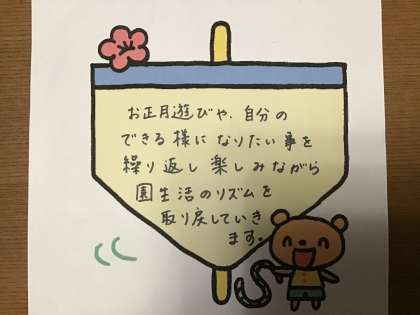 お正月遊びや、自分の
できる様になりたい事を
繰り返し楽しみながら
園生活のリズムを
取り戻していき
ます。